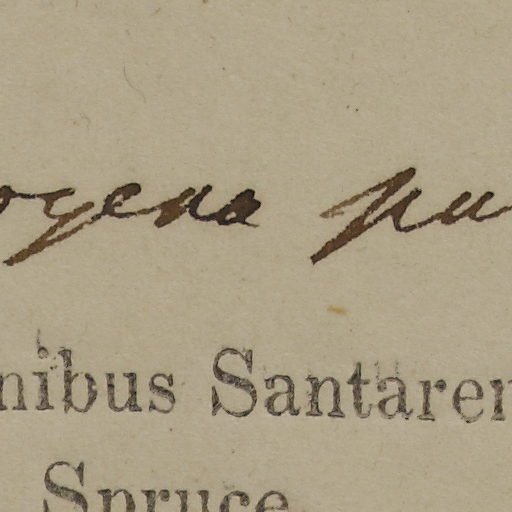 ogena pu
nibus Santarem
Spruce